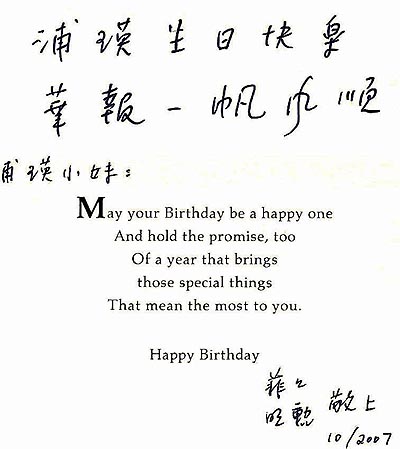 浦瑛生日快樂
華報一帆風順
甫瑛小妹:
May your Birthday be a happy one
And hold the promise, too
Of a year that brings
those special things
That mean the most to you.
Happy Birthday
菲々
明勳 敬上
10/2007